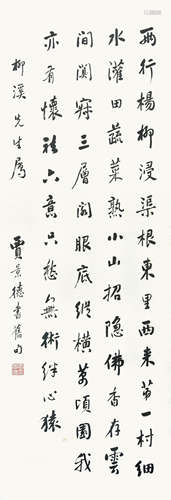 兩行楊柳浸渠根東里西來第一村細
水灌田蔬菜熟小山招隱佛香存雲
間闃寂三層閣眼底縱橫萬頃園我
亦有懷社六意只愁無術絆心猿
柳溪先生屬
賈景德書舊句